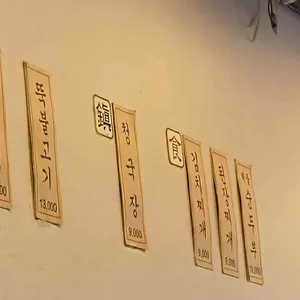 뚝불고기
13,000
鎭
청국장
9,000
食
김치찌개
9,000
된장찌개
9,000
순두부
10,000